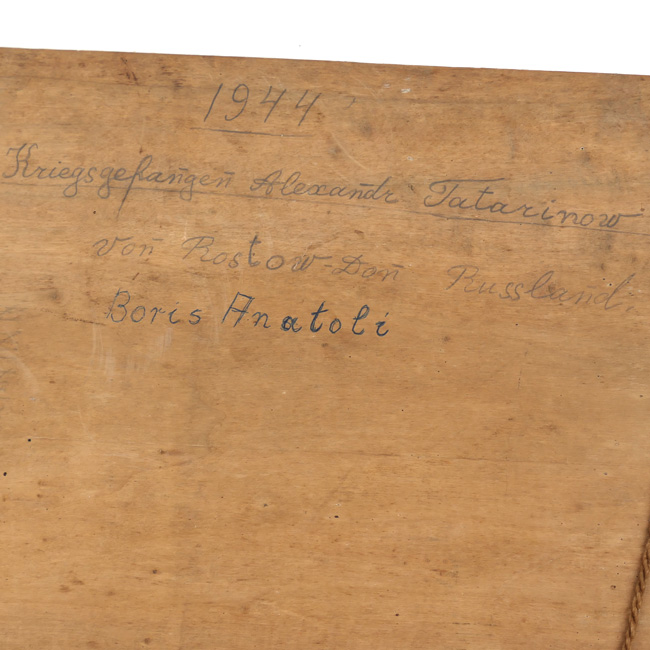 1944
Kriegsgeflan̄gen̄ Alexan̄dr Tatarinow
von̄ Rostow-Don̄ Russland.
Boris Anatoli